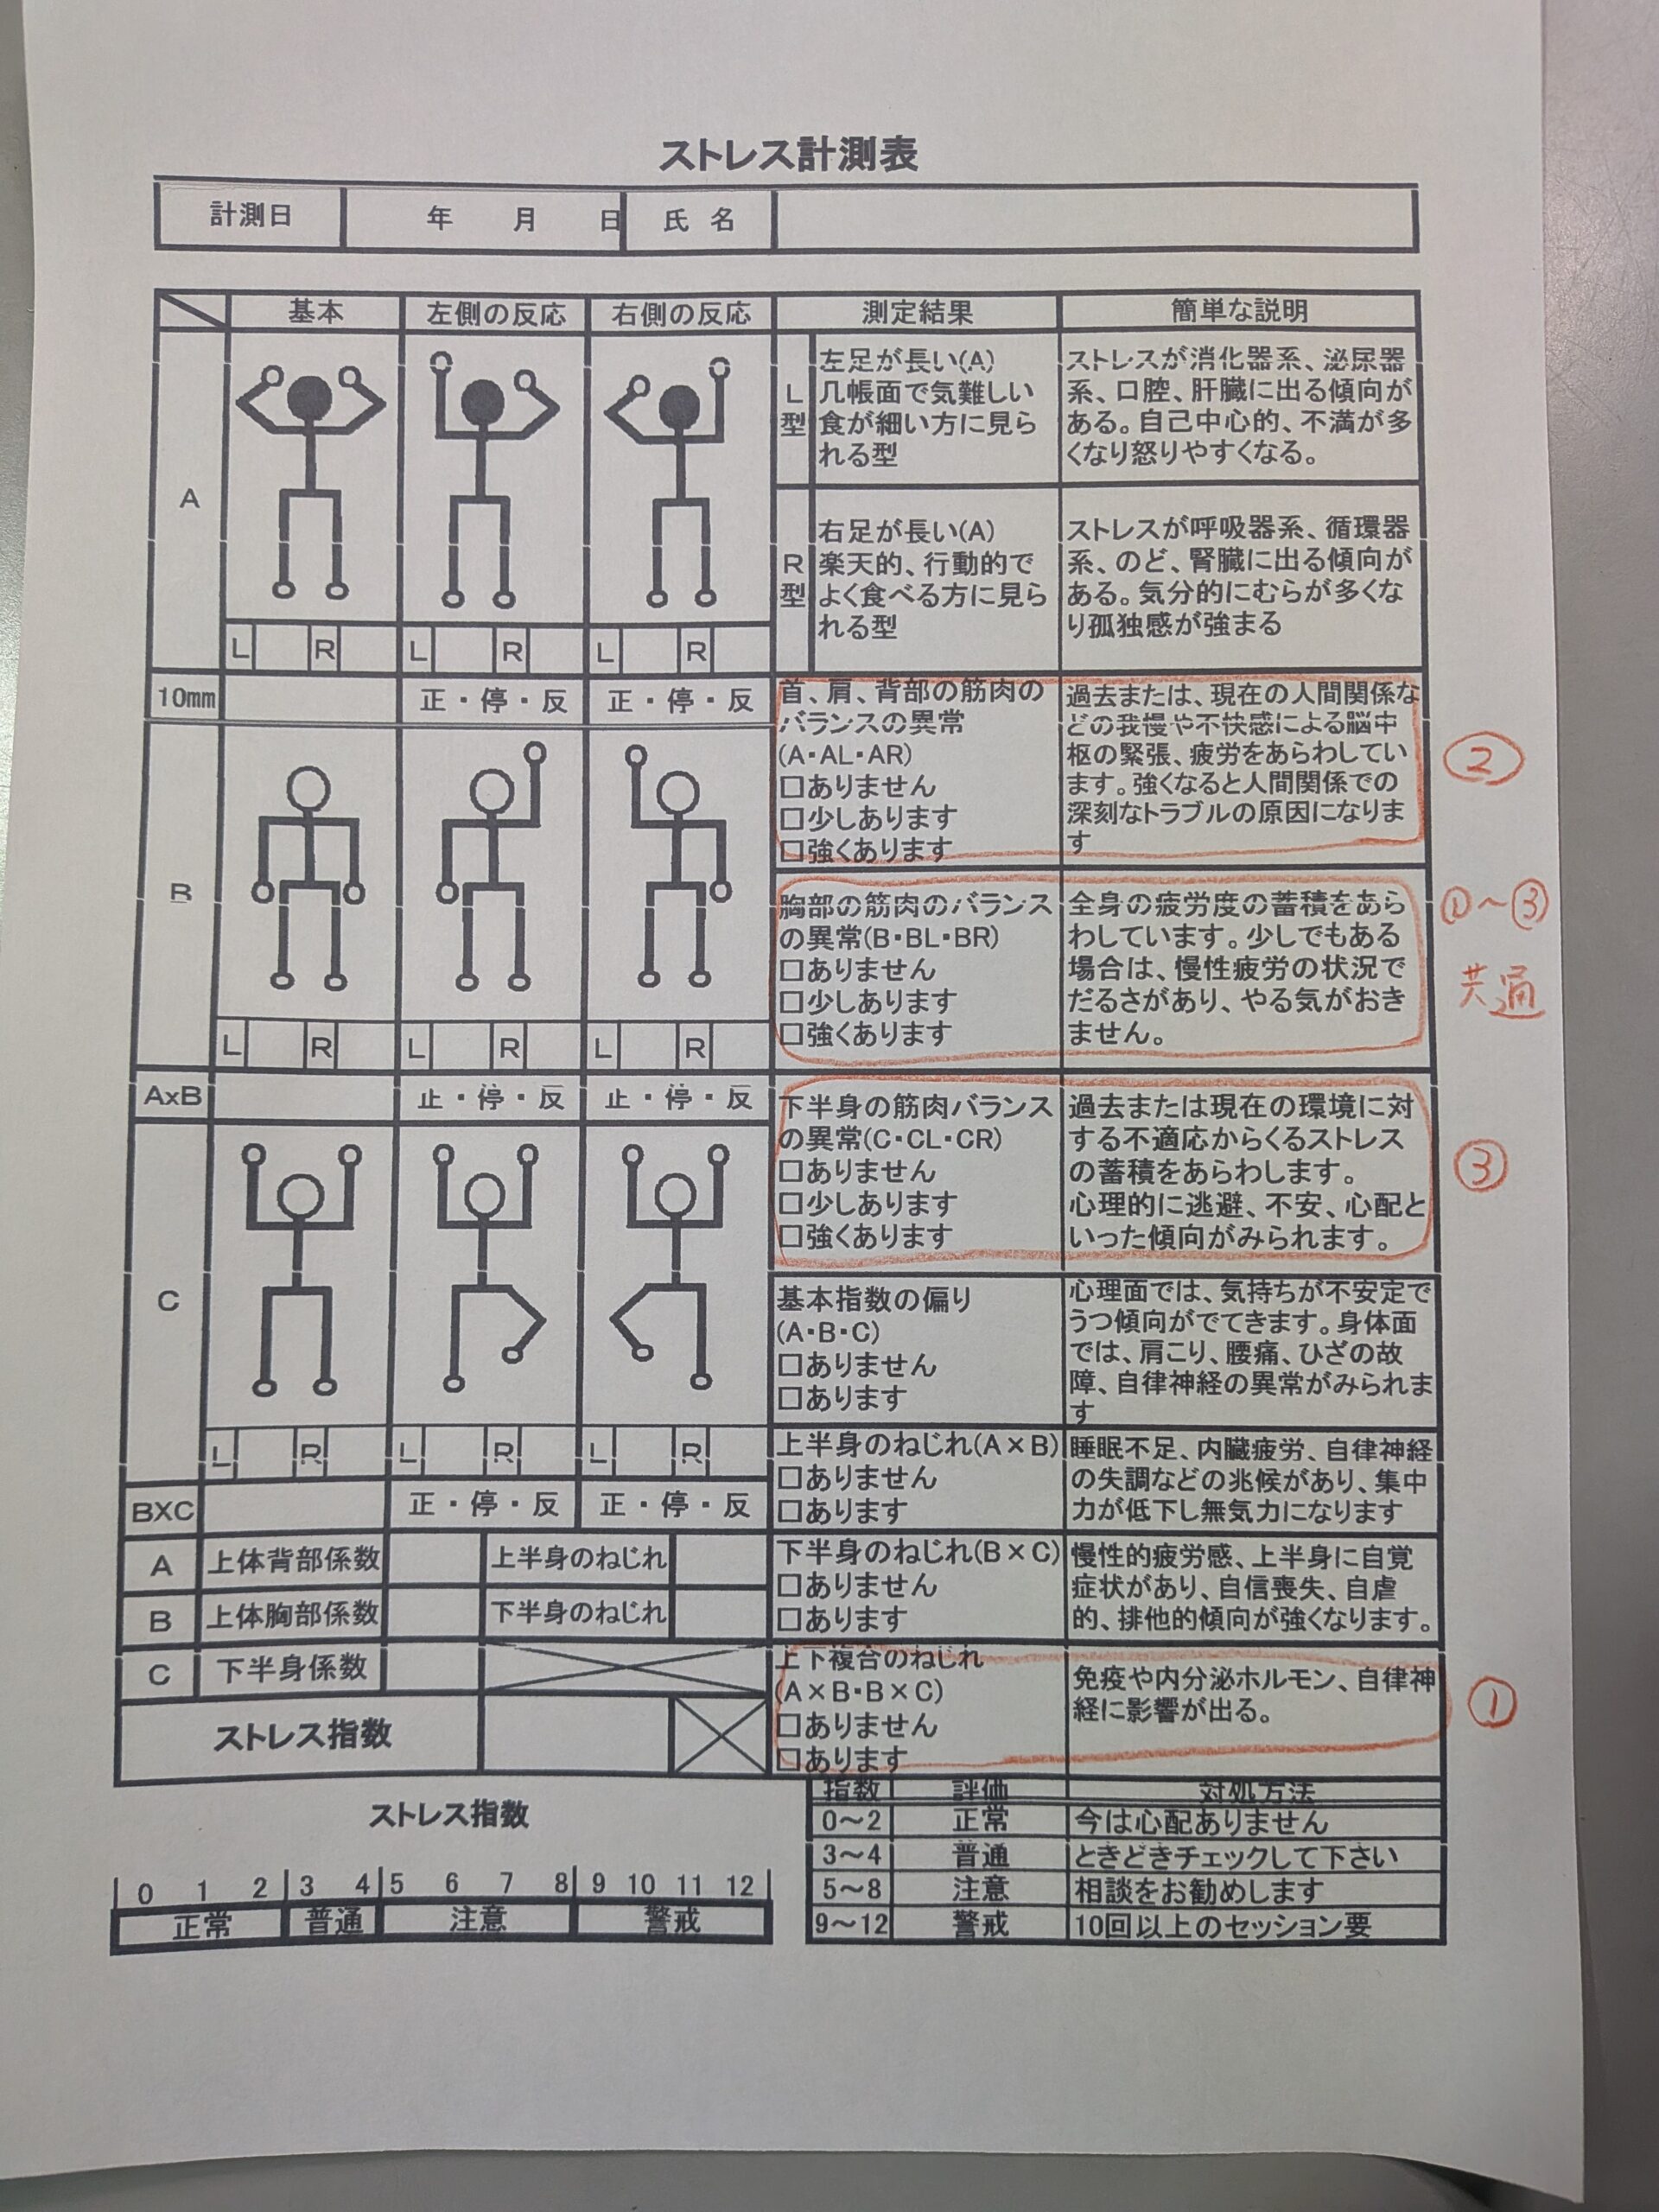 ストレス計測表
計測日 年 月 日 氏 名
基本 左側の反応 右側の反応 測定結果 簡単な説明
A
L R L R L R
L型
左足が長い(A)
几帳面で気難しい
食が細い方に見ら
れる型
ストレスが消化器系、泌尿器
系、口腔、肝臓に出る傾向が
ある。自己中心的、不満が多
くなり怒りやすくなる。
R型
右足が長い(A)
楽天的、行動的で
よく食べる方に見ら
れる型
ストレスが呼吸器系、循環器
系、のど、腎臓に出る傾向が
ある。気分的にむらが多くな
り孤独感が強まる
10mm 正・停・反 正・停・反
首、肩、背部の筋肉の
バランスの異常
(A・AL・AR)
□ありません
□少しあります
□強くあります
過去または、現在の人間関係な
どの我慢や不快感による脳中
枢の緊張、疲労をあらわしてい
ます。強くなると人間関係での
深刻なトラブルの原因になりま
す
②
B
L R L R L R
胸部の筋肉のバランス
の異常(B・BL・BR)
□ありません
□少しあります
□強くあります
全身の疲労度の蓄積をあら
わしています。少しでもある
場合は、慢性疲労の状況で
だるさがあり、やる気がおき
ません。
①~③
共通
AxB 正・停・反 正・停・反
下半身の筋肉バランス
の異常(C・CL・CR)
□ありません
□少しあります
□強くあります
過去または現在の環境に対
する不適応からくるストレス
の蓄積をあらわします。
心理的に逃避、不安、心配と
いった傾向がみられます。
③
C
L R L R L R
基本指数の偏り
(A・B・C)
□ありません
□あります
心理面では、気持ちが不安定で
うつ傾向がでてきます。身体面
では、肩こり、腰痛、ひざの故
障、自律神経の異常がみられま
す
上半身のねじれ(A×B)
□ありません
□あります
睡眠不足、内臓疲労、自律神経
の失調などの兆候があり、集中
力が低下し無気力になります
BXC 正・停・反 正・停・反
A 上体背部係数 上半身のねじれ
B 上体胸部係数 下半身のねじれ
下半身のねじれ(B×C)
□ありません
□あります
慢性的疲労感、上半身に自覚
症状があり、自信喪失、自虐
的、排他的傾向が強くなります。
C 下半身係数
ストレス指数
上下複合のねじれ
(A×B・B×C)
□ありません
□あります
免疫や内分泌ホルモン、自律神
経に影響が出る。
①
ストレス指数
0 1 2 3 4 5 6 7 8 9 10 11 12
正常 普通 注意 警戒
指数 評価 対処方法
0~2 正常 今は心配ありません
3~4 普通 ときどきチェックして下さい
5~8 注意 相談をお勧めします
9~12 警戒 10回以上のセッション要